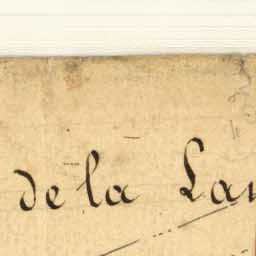 de la Lau